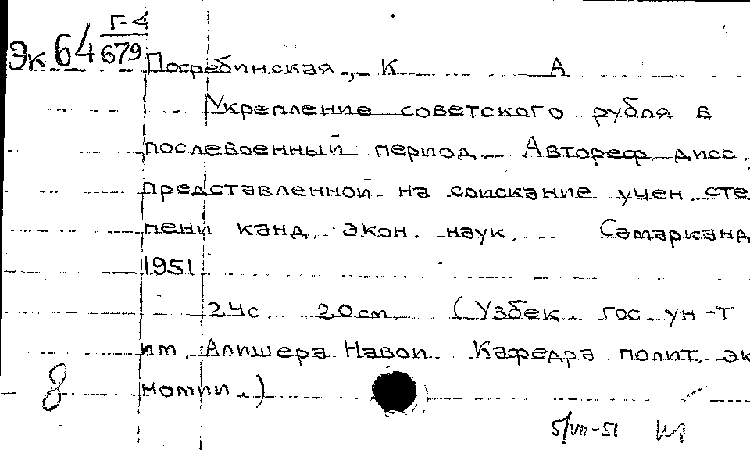 Г-4
Эк 64 679
Погребинская, К А
Укрепление советского рубля в
послевоенный период. Автореф дисс,
представленной на соискание учен. сте
пени канд. экон. наук. Самарканд
1951
24с. 20см. (Узбек. гос. ун-т
им. Алишера Навои. Кафедра полит. эк
номии.)
8
5/VIII-51